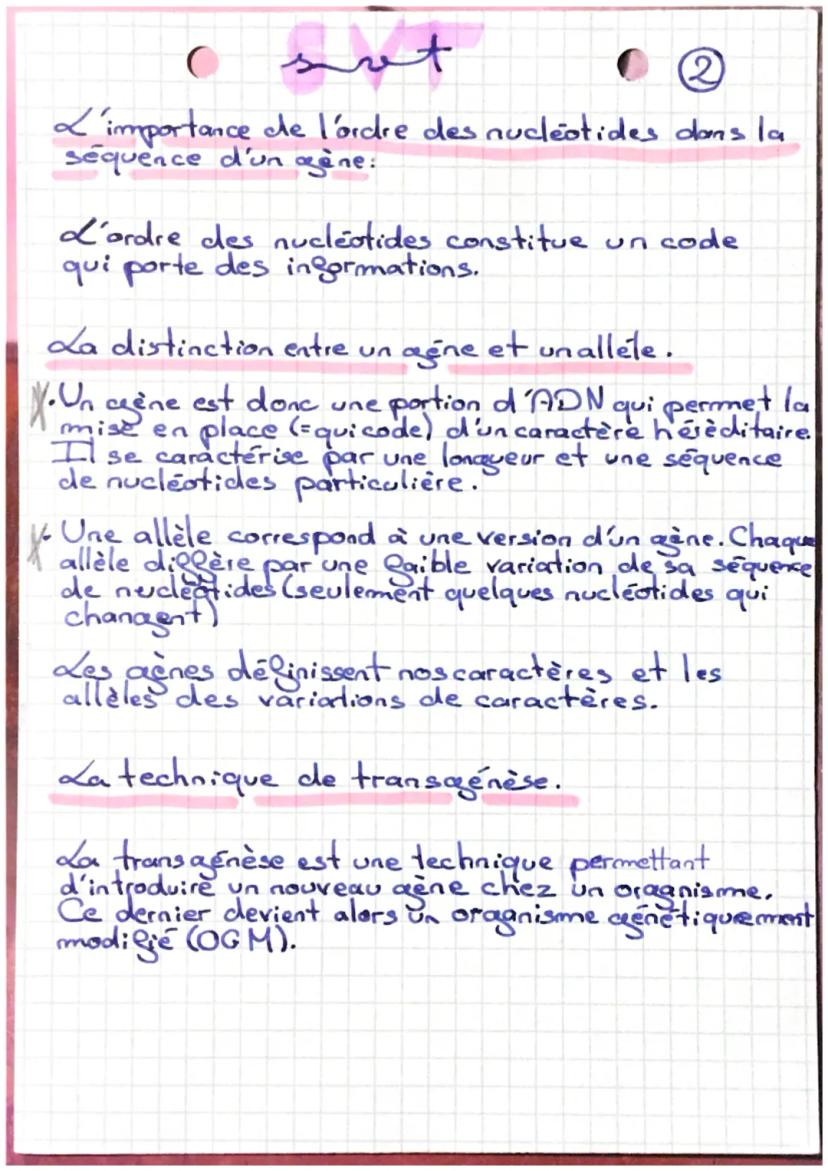 SVT
svt
2
L'importance de l'ordre des nucléotides dans la
séquence d'un gène:
L'ordre des nucléotides constitue un code
qui porte des informations.
La distinction entre un gène et un allèle.
• Un gène est donc une portion d'ADN qui permet la
mise en place (= qui code) d'un caractère héréditaire.
Il se caractérise par une longueur et une séquence
de nucléotides particulière.
• Une allèle correspond à une version d'un gène. Chaque
allèle diffère par une faible variation de sa séquence
de nucléotides (seulement quelques nucléotides qui
changent)
Les gènes définissent nos caractères et les
allèles des variations de caractères.
La technique de transgénèse.
La transgénèse est une technique permettant
d'introduire un nouveau gène chez un oragnisme.
Ce dernier devient alors un oragnisme génétiquement
modifié (OGM).